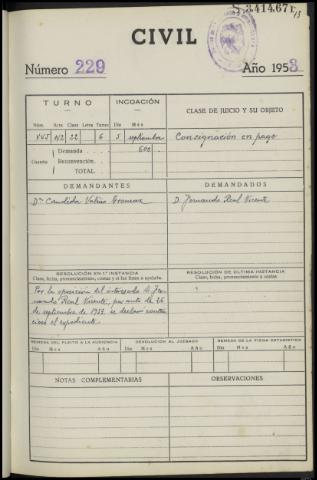 S.3414.671
13
CIVIL
Número 229 Año 1953
TURNO INCOACIÓN CLASE DE JUICIO Y SU OBJETO
Núm. Arts. Clase Letra Turno Día Mes
22 6 5 septiembre Consignación en pago
Cuantía Demanda 600
Reconvención.
TOTAL
DEMANDANTES DEMANDADOS
Dª Candida D. Fernando Real Vicente
RESOLUCIÓN EN 1.ª INSTANCIA RESOLUCIÓN DE ÚLTIMA INSTANCIA
Clase, fecha, pronunciamientos, costas y si fué firme o apelada. Clase, fecha, pronunciamiento y costas
Por la oposición del interesado D. Fer-
nando Real Vicente, por auto de 26
de septiembre de 1953, se declara conten-
cioso el expediente.
REMESA DEL PLEITO A LA AUDIENCIA DEVOLUCIÓN AL JUZGADO REMESA DE LA FICHA ESTADÍSTICA
Día Mes Año Día Mes Año Día Mes Año
NOTAS COMPLEMENTARIAS OBSERVACIONES